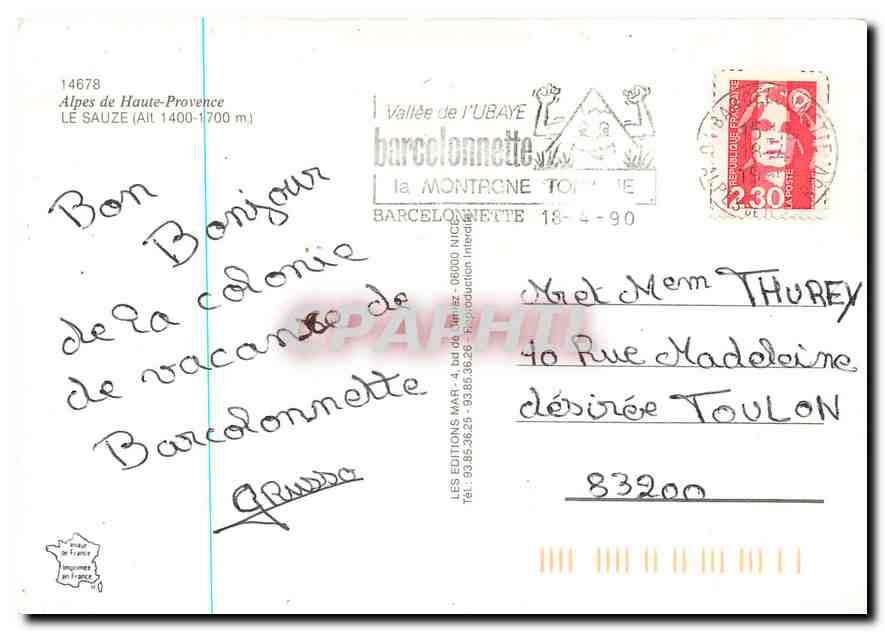 14678
Alpes de Haute-Provence
LE SAUZE (Alt. 1400-1700 m.)
Vallée de l'UBAYE
barcelonnette
la MONTAGNE
BARCELONNETTE 18-4-90
REPUBLIQUE FRANÇAISE
2.30
LA POSTE
Bon
Bonjour
de la colonie
de vacanse de
Barcolonnette
grusso
Mr et Mem THUREY
40 Rue Madeleine
désirée TOULON
83200
LES EDITIONS MAR - 4, bd de Cimiez - 06000 NICE
Tél.: 93.85.36.25 - 93.85.36.26 - Reproduction Interdite
Image
de France
Imprimée
en France
CPAPHIL